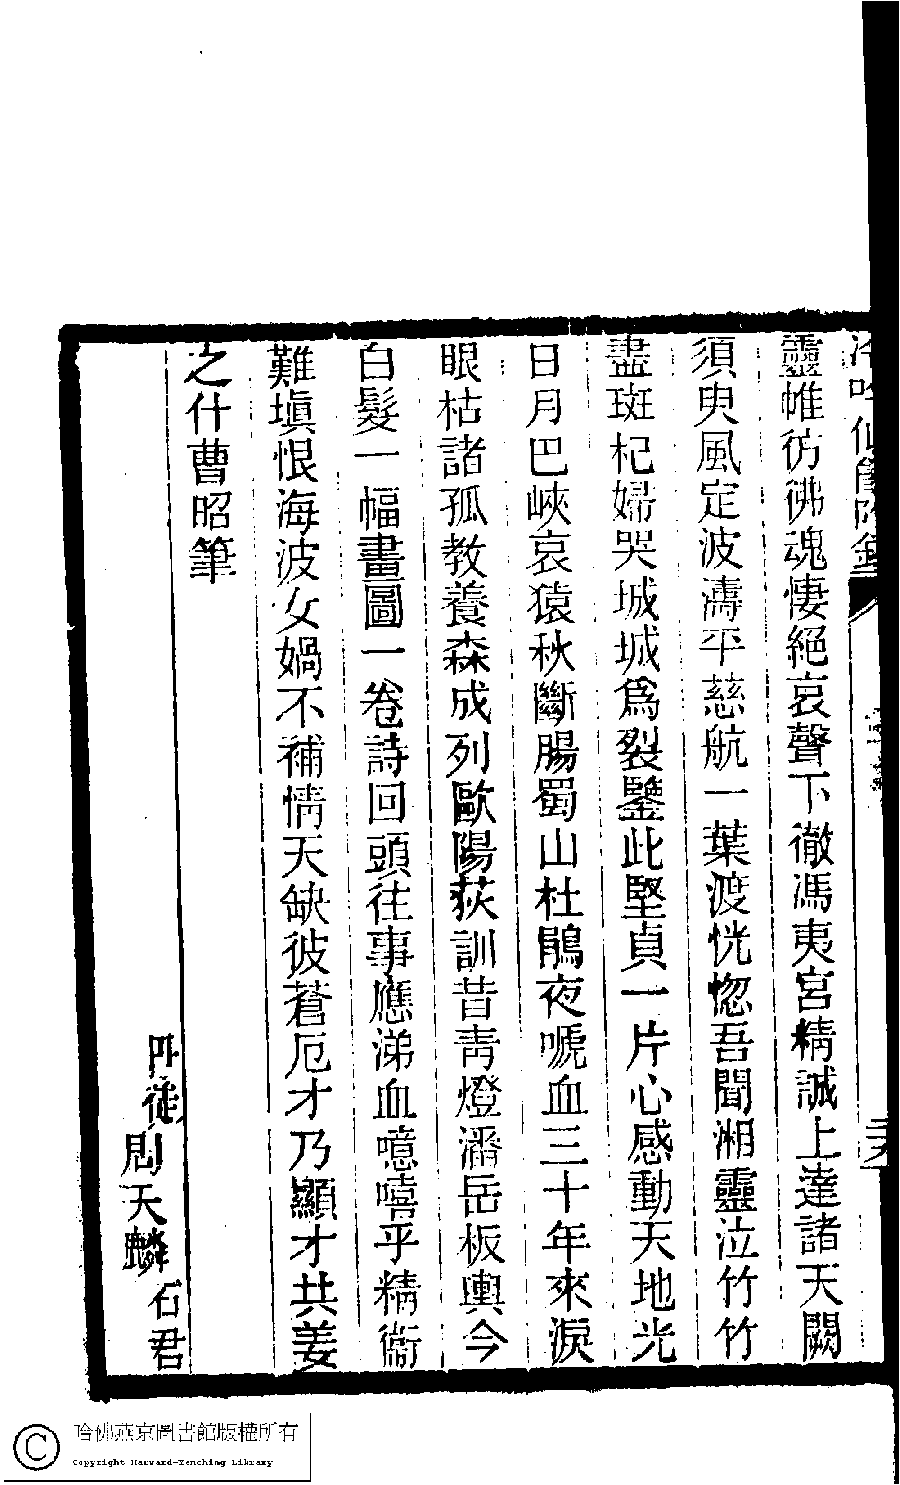 靈帷彷彿魂悽絕哀聲下徹馮夷宮精誠上達諸天闕
須臾風定波濤平慈航一葉渡恍惚吾聞湘靈泣竹竹
盡斑杞婦哭城城爲裂鑒此堅貞一片心感動天地光
日月巴峽哀猿秋斷腸蜀山杜鵑夜嗁血三十年來淚
眼枯諸孤教養森成列歐陽荻訓昔靑燈潘岳板輿今
白髮一幅畫圖一卷詩回頭往事應涕血噫嘻乎精衞
難塡恨海波女媧不補情天缺彼蒼厄才乃顯才共姜
之什曹昭筆
丹徒周天麟石君
哈佛燕京圖書館版權所有
Copyright Harvard-Yenching Library